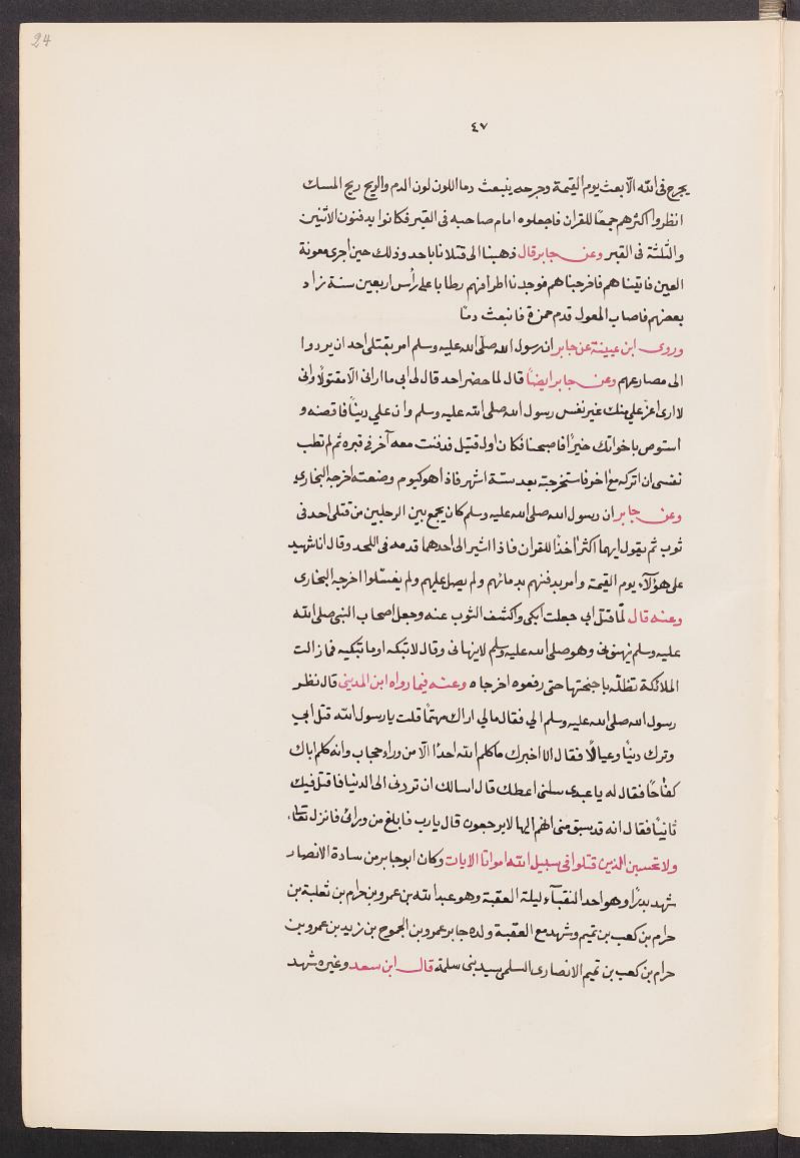 24
٤٧
يجرح فى الله الّا بعث يوم القيمة وجرحه ينبعث دما اللون لون الدم والريح ريح المسك
انظروا اكثرهم جمعًا للقران فاجعلوه امام صاحبه فى القبر فكانوا يدفنون الاثنين
والثلثة فى القبر وعن جابر قال ذهبنا الى قتلانا باحد وذلك حين اجرى معونة
العين فاتيناهم فاخرجناهم فوجدنا اطرافهم رطابا على رأس اربعين سنة زاد
بعضهم فاصاب المعول قدم حمزة فانبعث دمًا
وروى ابن عيينة عن جابر ان رسول الله صلّى الله عليه وسلم امر بقتلى احد ان يردوا
الى مصارعهم وعن جابر ايضًا قال لما حضر احد قال لى ابى ما ارانى الّا مقتولًا وانى
لا ارى اعزّ علي منك غير نفس رسول الله صلى الله عليه وسلم وان علي دينًا فاقضه و
استوص باخواتك خيرًا فاصبحنا فكان اول قتيل فدفنت معه آخر فى قبره ثم لم تطب
نفسى ان اتركه مع اخر فاستخرجته بعد ستة اشهر فاذا هو كيوم وضعته اخرجه البخاري
وعن جابر ان رسول الله صلى الله عليه وسلم كان يجمع بين الرجلين من قتلى احد فى
ثوب ثم يقول ايهما اكثر اخذًا للقران فاذا اشير الى احدهما قدمه فى اللحد وقال انا شهيد
على هؤلآء يوم القيمة وامر بدفنهم بدمائهم ولم يصل عليهم ولم يغسّلوا اخرجه البخارى
وعنه قال لمّا قتل ابى جعلت ابكى واكشف الثوب عنه وجعل اصحاب النبى صلى الله
عليه وسلم ينهونى وهو صلى الله عليه وسلم لا ينهانى وقال لا تبكه اوما تبكيه فما زالت
الملائكة تظلّه باجنحتها حتى رفعوه اخرجاه وعنه فيما رواه ابن المدينى قال نظر
رسول الله صلى الله عليه وسلم الي فقال مالي اراك مهتمًا قلت يا رسول الله قتل ابي
وترك دينًا وعيالًا فقال الا اخبرك ما كلم الله احدًا الّا من وراء حجاب وانه كلم اباك
كفاحًا فقال له يا عبدى سلنى اعطك قال اسالك ان تردنى الى الدنيا فاقتل فيك
ثانيًا فقال انه قد سبق منى انهم اليها لا يرجعون قال يارب فابلغ من ورائى فانزل تعالى
ولا تحسبن الذين قتلوا فى سبيل الله امواتا الايات وكان ابو جابر من سادة الانصار
شهد بدرًا وهو احد النقبآء ليلة العقبة وهو عبد الله بن عمرو بن حرام بن ثعلبة بن
حرام بن كعب بن تميم وشهد مع العقبة ولده جابر عمرو بن الجموح بن زيد بن عمرو بن
حرام بن كعب بن تميم الانصارى السلمى سيد بنى سلمة قال ابن سعد وغيره شهد